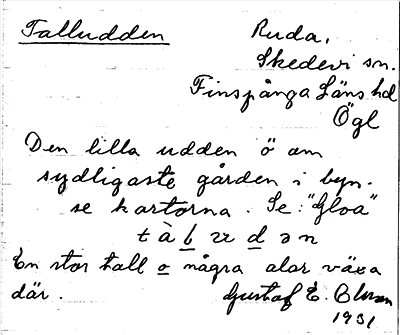 Talludden
Ruda,
Skedevi sn.
Finspånga Läns hd
Ögl
Den lilla udden ö om
sydligaste gården i byn.
se kartorna. Se: "Gloa"
En stor tall o några alar växa
där.
Gustaf E. Olsson
1931